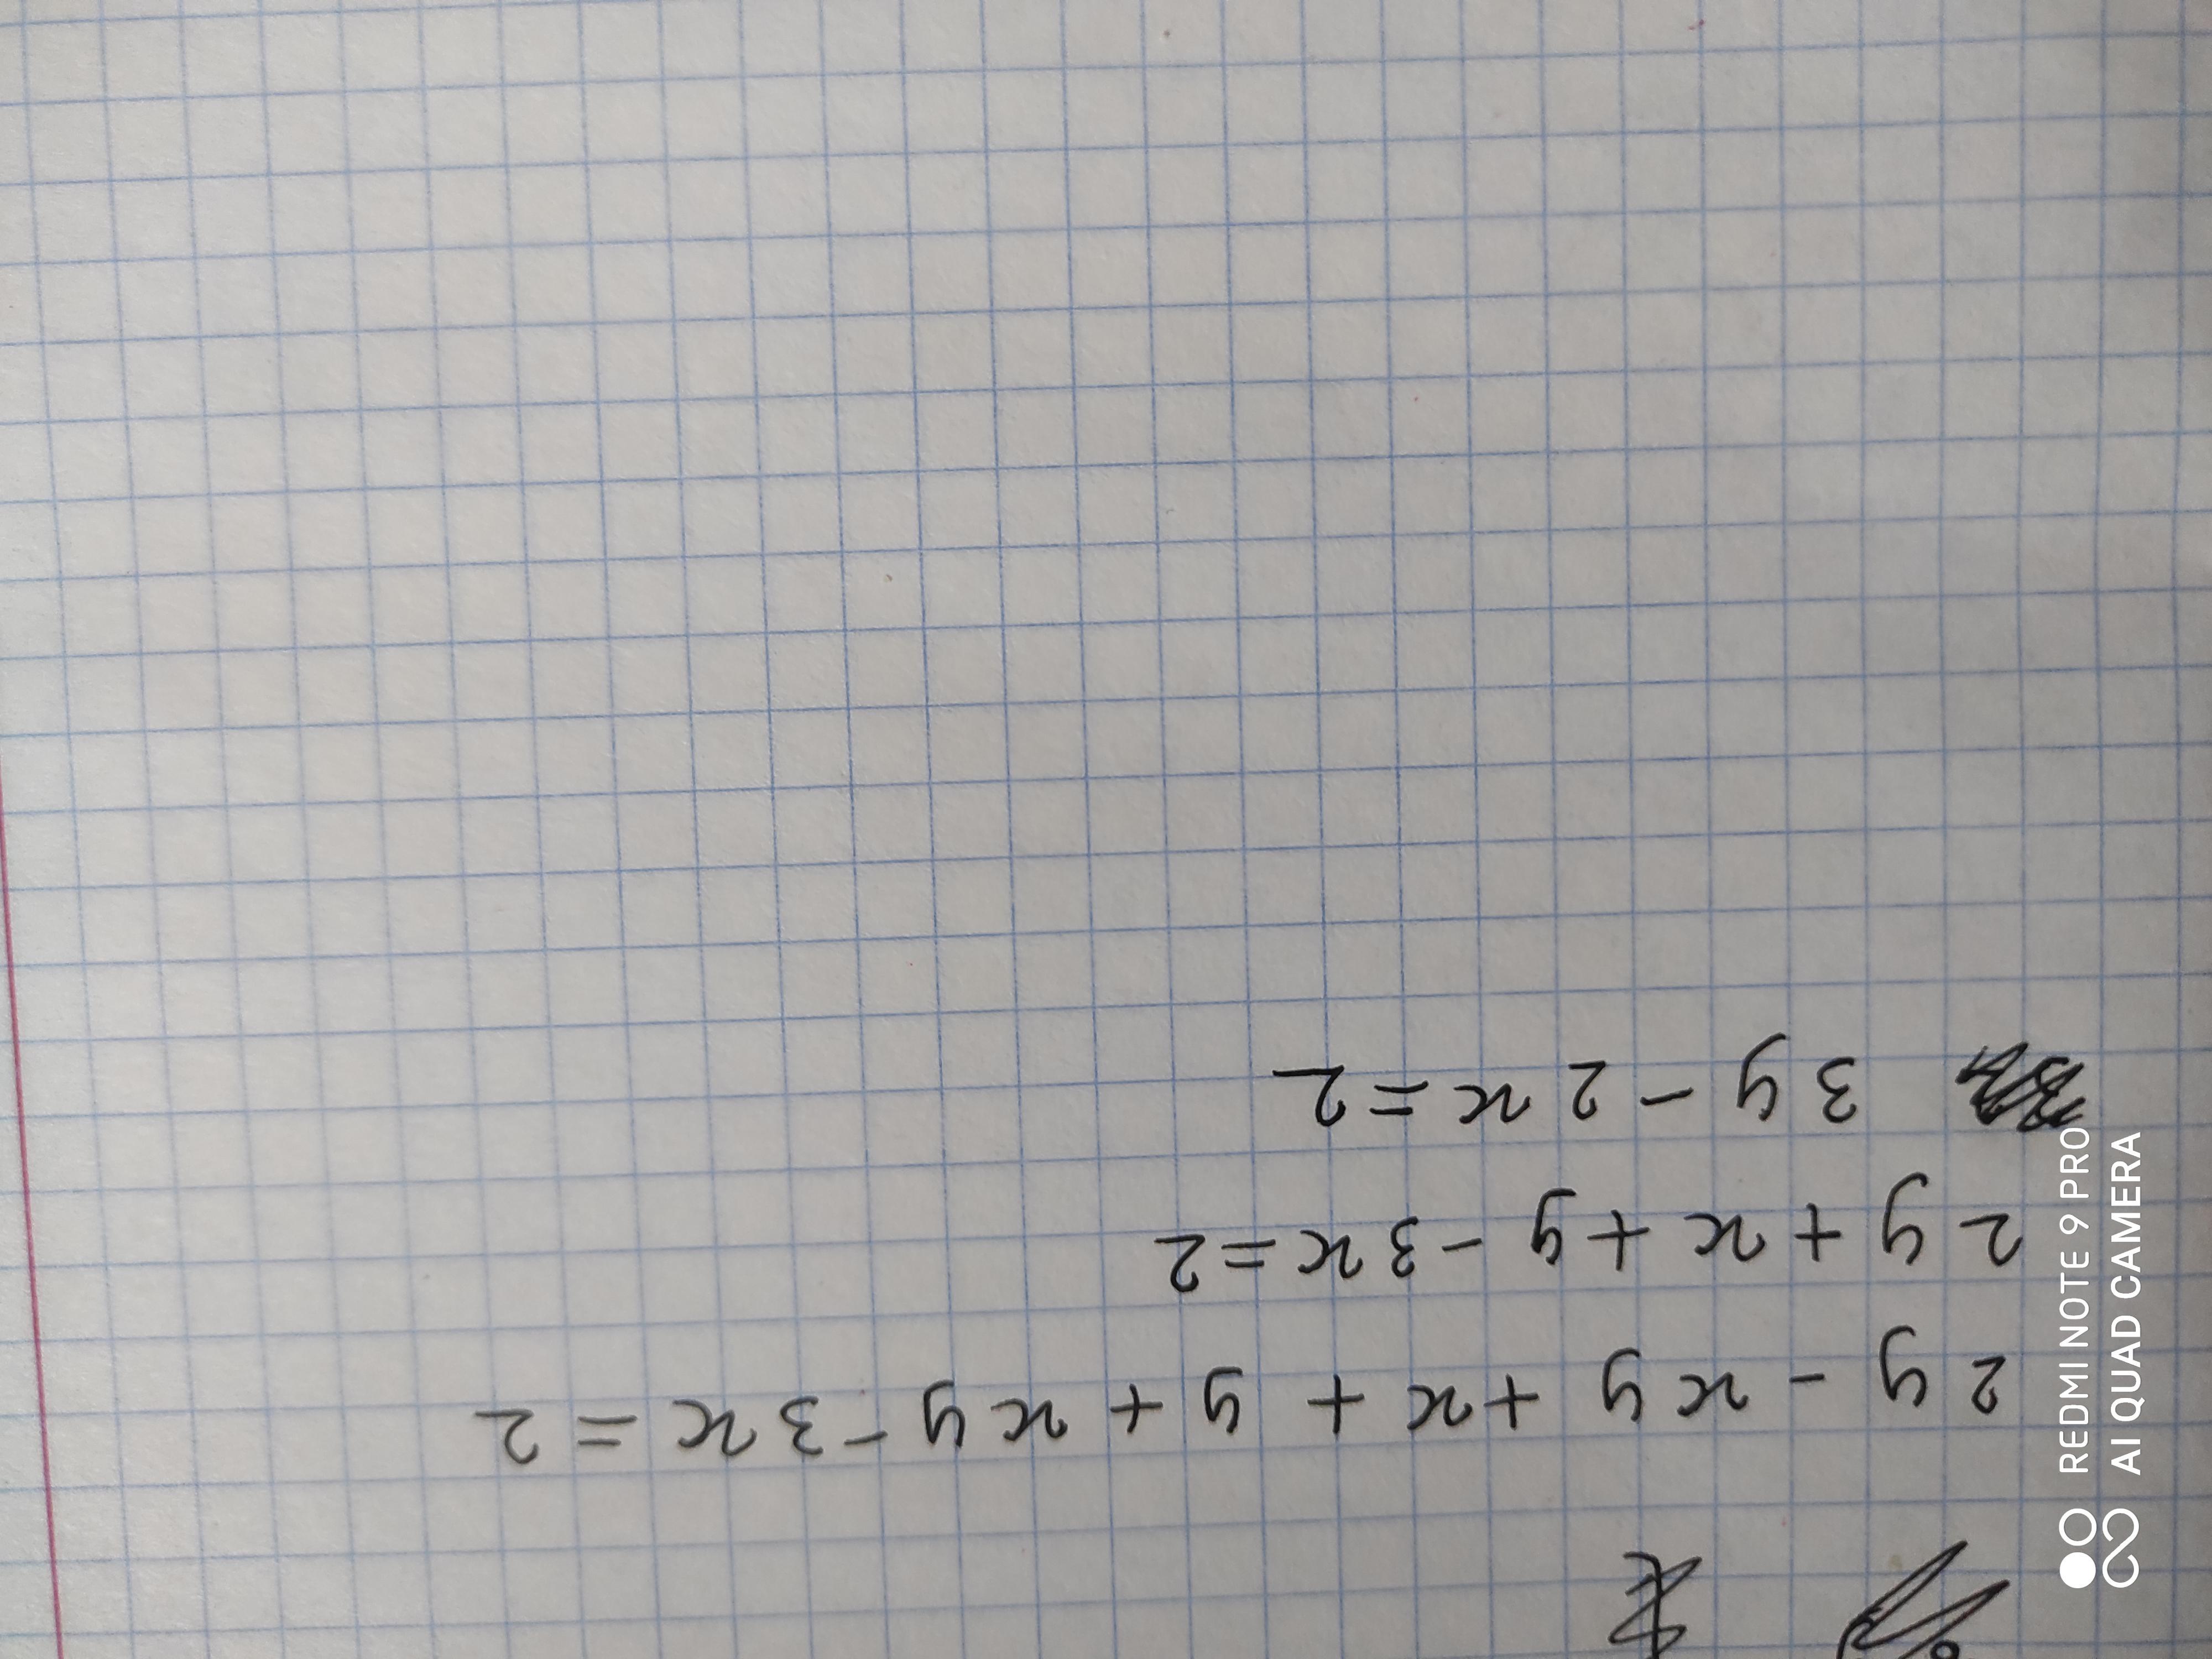 2y - xy + x + y + xy - 3x = 2
2y + x + y - 3x = 2
3y - 2x = 2
REDMI NOTE 9 PRO
AI QUAD CAMERA